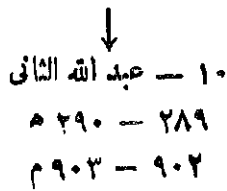 ١٠ — عبد الله الثانى
٢٨٩ — ٢٩٠ هـ
٩٠٢ — ٩٠٣ م